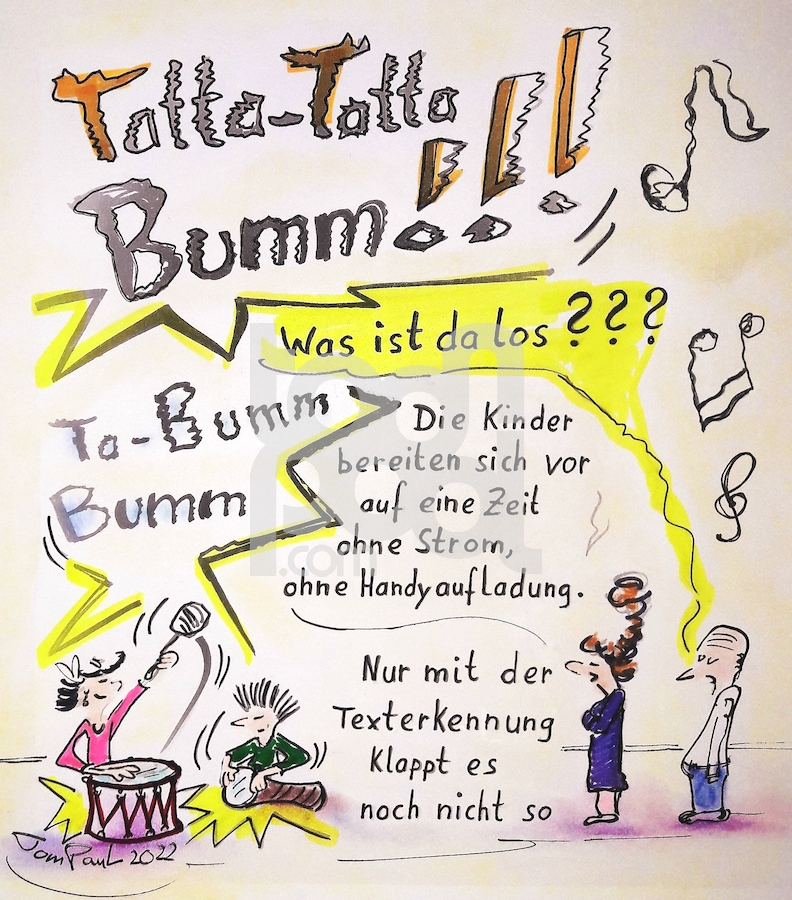 Tatta-Tatta
Bumm!!!
Was ist da los ???
Ta-Bumm
Bumm
Die Kinder
bereiten sich vor
auf eine Zeit
ohne Strom,
ohne Handyaufladung.
Nur mit der
Texterkennung
klappt es
noch nicht so
Tom Paul 2022
.com